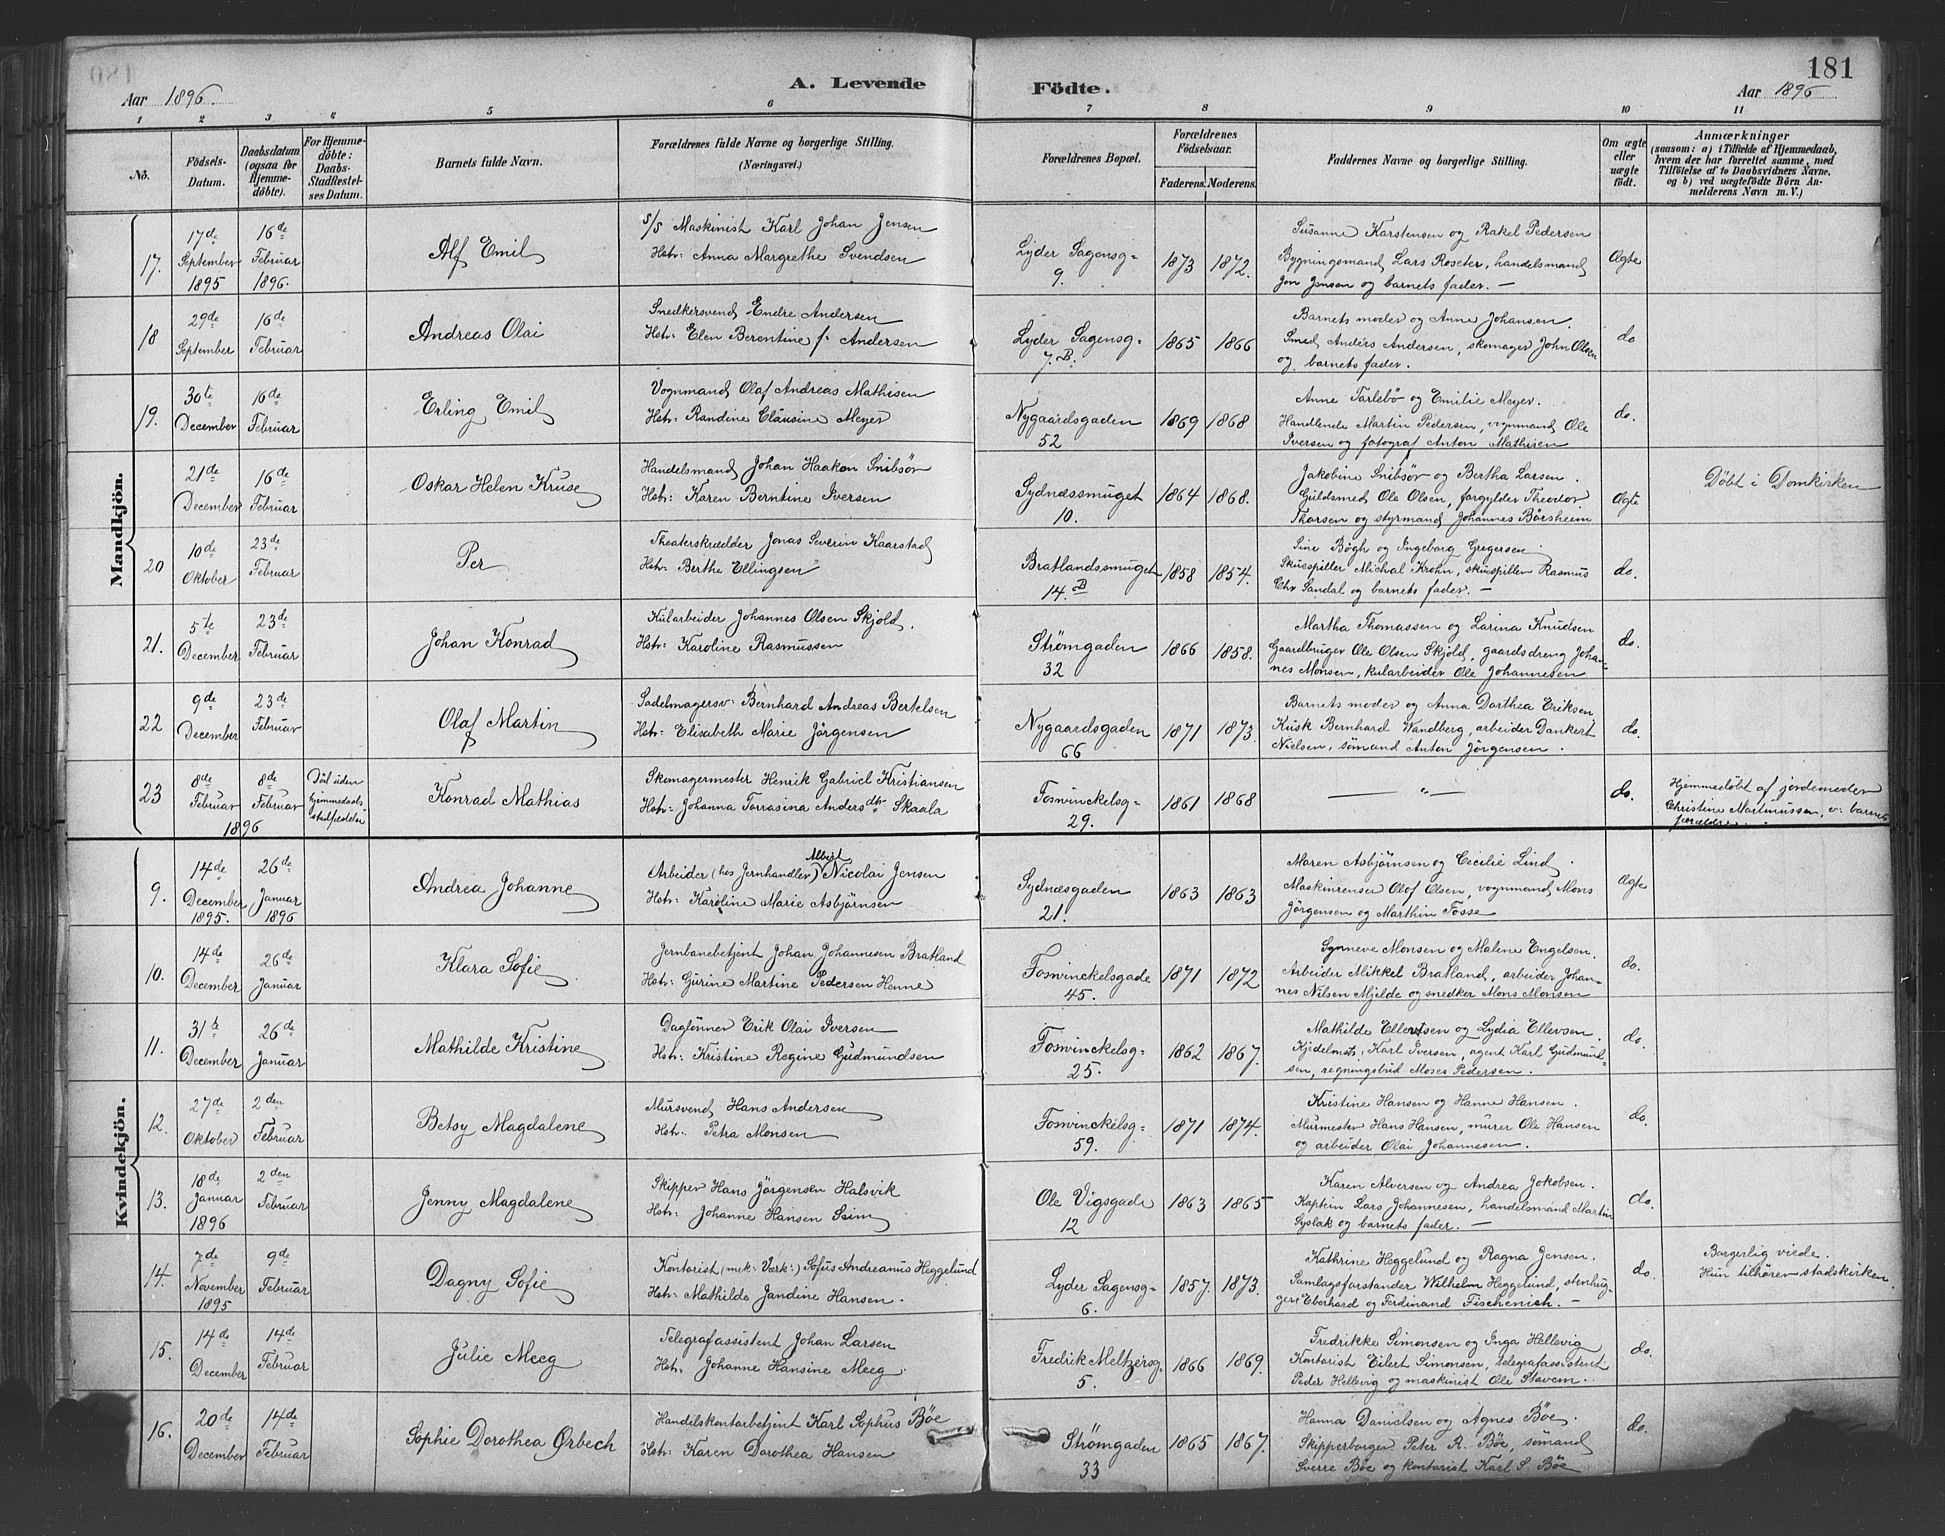 181
Aar 1896.
A. Levende Födte.
Aar 1896
1 2 3 4 5 6 7 8 9 10 11
No.
Födsels-Datum.
Daabsdatum (ogsaa for Hjemmedöbte).
For Hjemmedöbte: Daabs-Stadfæstelses Datum.
Barnets fulde Navn.
Forældrenes fulde Navne og borgerlige Stilling. (Næringsvei.)
Forældrenes Bopæl.
Forældrenes Födselsaar.
Faderens. Moderens.
Faddernes Navne og borgerlige Stilling.
Om ægte eller uægte födt.
Anmærkninger (saasom: a) i Tilfælde af Hjemmedaab, hvem der har forrettet samme, med Tilföielse af to Daabsvidners Navne, og b) ved uægtefödte Börn Anmelderens Navn m. V.)
Mandkjön.
17. 17de September 1895 16de Februar 1896. Alf Emil
S/S Maskinist Karl Johan Jensen
Hstr: Anna Margrethe Svendsen
Lyder Sagensg- 9. 1873 1872.
Susanne Karstensen og Rakel Pedersen
Bygningsmand Lars Roseter, handelsmand
Jon Jensen og barnets fader. —
Ægte
18 29de September 16de Februar Andreas Olai
Snedkersvend Endre Andersen
Hstr: Elen Berentine f. Andersen
Lyder Sagensg- 7. B. 1865 1866
Barnets moder og Anne Johansen.
Smed Anders Andersen, skomager John Olsen
og barnets fader.
do
19. 30te December 16de Februar Erling Emil
Vognmand Olaf Andreas Mathisen
Hstr: Randine Clausine Meyer
Nygaardsgaden 52 1869 1868
Anne Tarlebø og Emilie Meyer.
Handlende Martin Pedersen, vognmand Ole
Iversen og fotograf Anton Mathisen
do.
21de December 16de Februar Oskar Helen Kruse
Handelsmand Johan Haakon Snibsør
Hstr: Karen Berntine Iversen
Sydnæssmuget 10. 1864 1868.
Jakobine Snibsør og Bertha Larsen.
Guldsmed Ole Olsen, forgylder Theodor
Thorsen og styrmand Johannes Børsheim
Ægte
Döbt i Domkirken
20 10de Oktober 23de Februar Per
Theaterskrædder Jonas Severin Kaarstad
Hstr: Berthe Ellingsen
Bratlandssmuget 14. B 1858 1854.
Sine Bøgh og Ingeborg Gregersen
Skuespiller Michal Krohn, skuespiller Rasmus
Chr Sandal og barnets fader. —
do.
21. 5te December 23de Februar Johan Konrad
Kularbeider Johannes Olsen Skjold.
Hstr: Karoline Rasmussen
Strømgaden 32 1866 1858.
Martha Thomassen og Larina Knudsen
Gaardbruger Ole Olsen Skjold, gaardsdreng Johan-
nes Monsen, kularbeider Ole Johannesen
do.
22 9de December 23de Februar Olaf Martin
Sadelmagersv: Bernhard Andreas Bertelsen
Hstr: Elisabeth Marie Jørgensen
Nygaardsgaden 66 1871 1873.
Barnets moder og Anna Dorthea Eriksen
Kusk Bernhard Wandberg, arbeider Dankert
Nielsen, sømand Anton Jørgensen.
do.
23 8de Februar 1896 8de Februar
uden
Konrad Mathias
Skomagermester Henrik Gabriel Kristiansen
Hstr: Johanna Torrasina Andersdtr Skaala
Fosvinckelsg- 29. 1861 1868
— „ —
do.
Hjemmedöbt af jordemoder
Christine Martinussen, v: barnets
forældre
Kvindekjön.
9. 14de December 1895. 26de Januar 1896 Andrea Johanne
Arbeider (hos Jernhandler) Albert Nicolai Jensen
Hstr: Karoline Marie Asbjørnsen
Sydnæsgaden 21. 1863 1863
Maren Asbjørnsen og Cecilie Lind.
Maskinrenser Olof Olsen, vognmand Mons
Jörgensen og Marthin Fosse
Ægte
10. 14de December 26de Januar Klara Sofie
Jernbanebetjent Johan Johannesen Bratland
Hstr: Gurine Martine Pedersen Henne
Fosvinckelsgade 45. 1871 1872
Synneve Monsen og Malene Engelsen.
Arbeider Mikkel Bratland, arbeider Johan-
nes Nilsen Mjelde og snedker Mons Monsen
do.
11. 31te December 26de Januar Mathilde Kristine
Dagtönner Erik Olai Iversen
Hstr: Kristine Regine Gudmundsen
Fosvinckelsg- 25. 1862 1867.
Mathilde Ellertsen og Lydia Ellevsen.
Kjedelmsts. Karl Iversen, agent Karl Gudmund-
sen, regningsbud Moses Pedersen.
do.
12. 27de Oktober 2den Februar Betsy Magdalene
Mursvend Hans Andersen
Hstr: Petra Monsen
Fosvinckelsg- 59. 1871 1874.
Kristine Hansen og Hanne Hansen.
Murmester Hans Hansen, murer Ole Hansen
og arbeider Olai Johannesen.
do.
13. 18de Januar 1896 2den Februar Jenny Magdalene
Skipper Hans Jörgensen Halsvik
Hstr: Johanne Hansen Seim
Ole Vigsgade 12 1863 1865
Karen Alversen og Andrea Jokobsen.
Kaptein Lars Johannesen, handelsmand Martin
Syslak og barnets fader. —
do.
14. 7de November 1895 9de Februar Dagny Sofie
Kontorist (mek: Værk:) Sofus Andreanus Heggelund
Hstr: Mathilde Jandine Hansen.
Lyder Sagensg- 6. 1857. 1873.
Kathrine Heggelund og Ragna Jensen.
Samlagsforstander Wilhelm Heggelund, stenhug-
gere Eberhard og Ferdinand Fischenich. —
do.
Borgerlig viede.
Hun tilhører stadskirken.
15. 14de December 14de Februar Julie Meeg
Telegrafassistent Johan Larsen
Hstr. Johanne Hansine Meeg.
Fredrik Meltzersg- 5. 1866 1869.
Fredrikke Simonsen og Inga Hellevig
Kontorist Eilert Simonsen, telegrafassistent
Peder Hellevig og maskinist Ole Stavem.
do.
16. 20de December 14de Februar Sophie Dorothea Ørbech
Handelskontorbetjent Karl Sophus Bøe
Hstr: Karen Dorothea Hansen
Strømgaden 33 1865 1867.
Hanna Danielsen og Agnes Bøe.
Skipperborger Peter A. Bøe, sømand
Sverre Bøe og kontorist Karl S. Bøe
do.